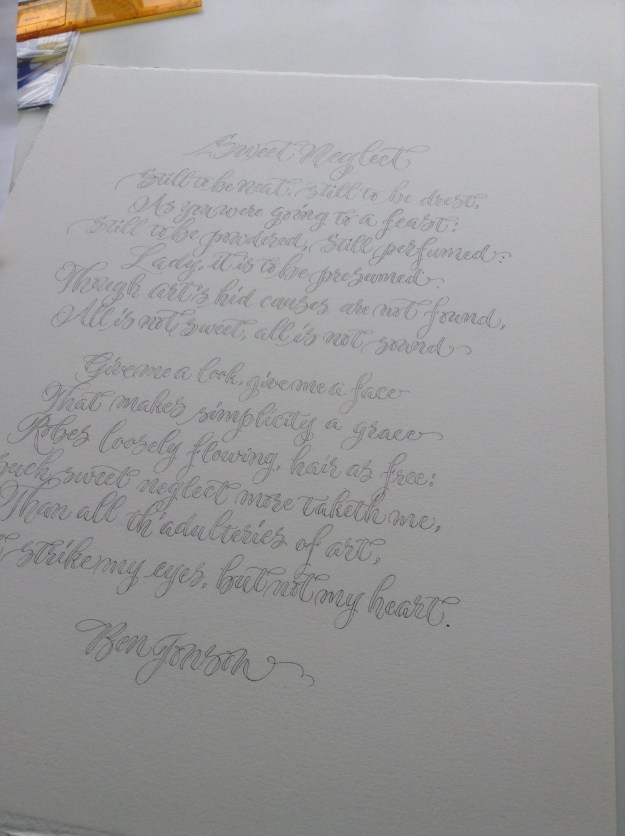 Sweet Neglect
Still to be neat, still to be drest,
As you were going to a feast:
Still to be powdered, still perfumed:
Lady, it is to be presumed:
Though art's hid causes are not found,
All is not sweet, all is not sound
Give me a look, give me a face
That makes simplicity a grace
Robes loosely flowing, hair as free:
Such sweet neglect more taketh me,
Than all th'adulteries of art,
strike my eyes, but not my heart.
Ben Jonson